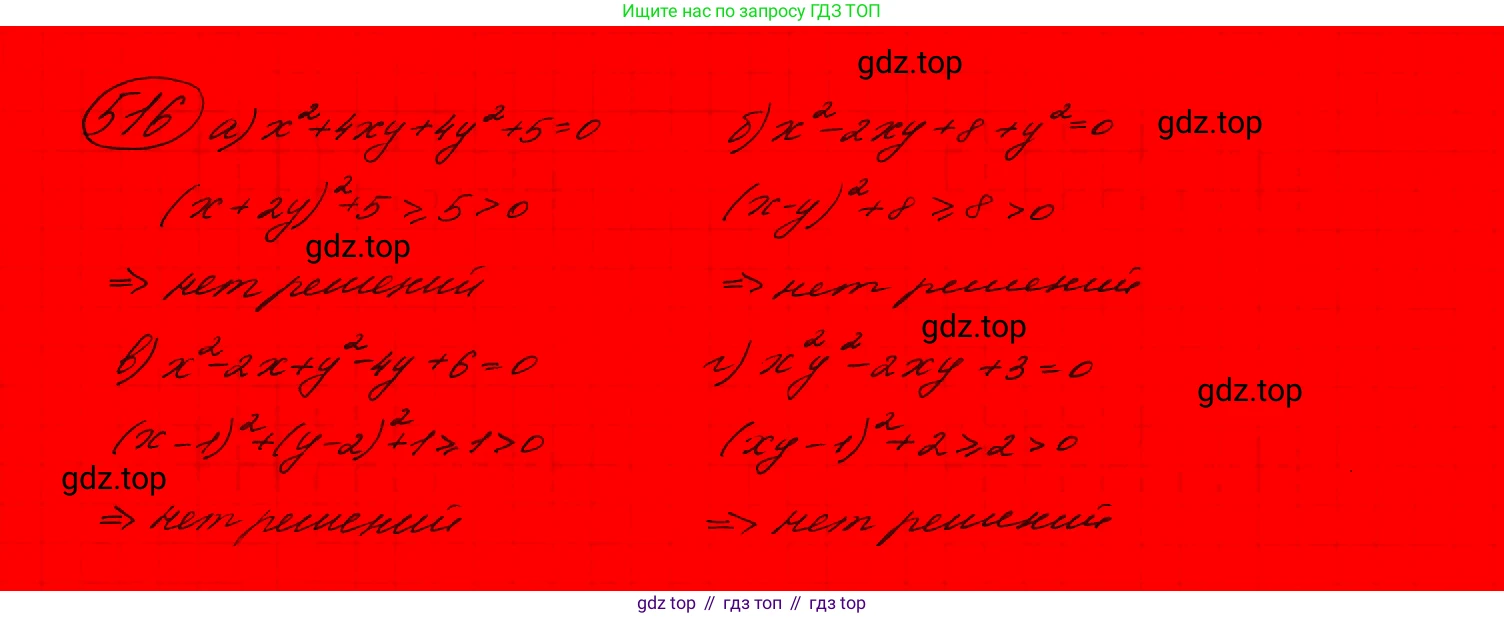 Ищите нас по запросу ГДЗ ТОП
gdz.top
516 а) x²+4xy+4y²+5=0
б) x²-2xy+8+y²=0
gdz.top
(x+2y)²+5⩾5>0
(x-y)²+8⩾8>0
gdz.top
⇒ нет решений
⇒ нет решений
gdz.top
в) x²-2x+y²-4y+6=0
г) x²y²-2xy+3=0
gdz.top
(x-1)²+(y-2)²+1⩾1>0
(xy-1)²+2⩾2>0
gdz.top
⇒ нет решений
⇒ нет решений
gdz top // гдз топ // гдз top